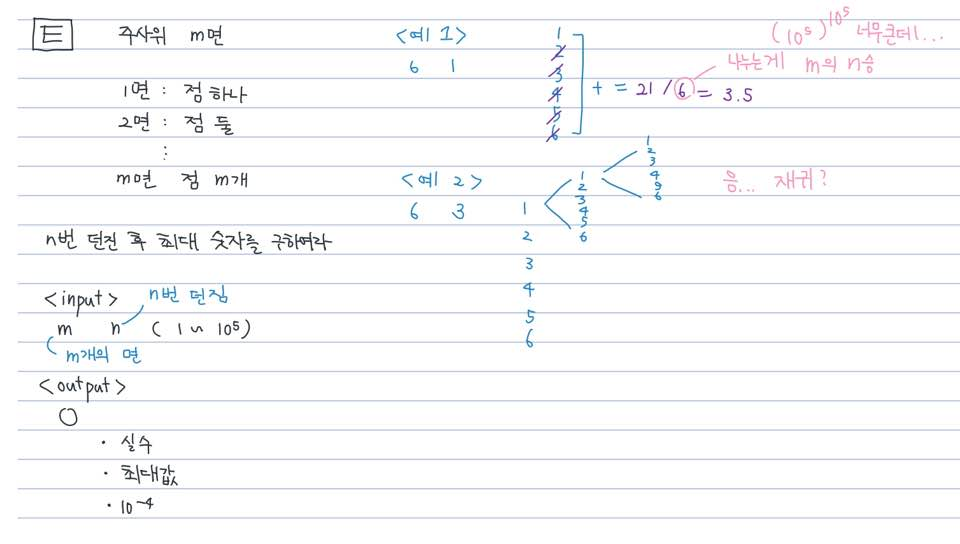 E
주사위 m면
1면 : 점 하나
2면 : 점 둘
⋮
m면 점 m개
n번 던진 후 최대 숫자를 구하여라
<input>
n번 던짐
m n ( 1 ~ 10⁵)
m개의 면
<output>
○
· 실수
· 최대값
· 10⁻⁴
<예 1>
6 1
1
2
3
4
5
6
+ = 21 / 6 = 3.5
(10⁵)^10⁵ 너무큰데!...
나누는게 m의 n승
<예 2>
6 3
1
2
3
4
5
6
1
2
3
4
5
6
1
2
3
4
5
6
음... 재귀?